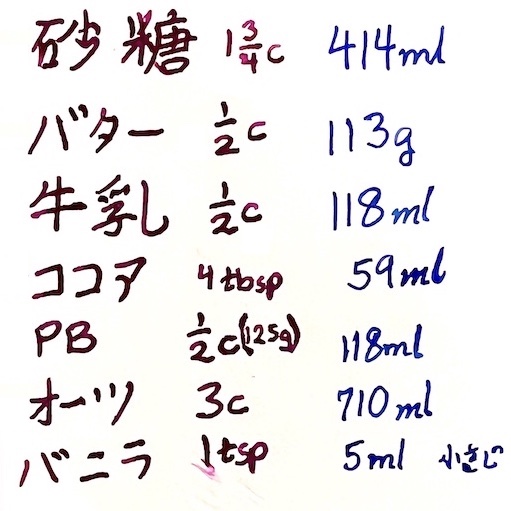 砂糖 1 3/4c 414ml
バター 1/2c 113g
牛乳 1/2c 118ml
ココア 4tbsp 59ml
PB 1/2c(125g) 118ml
オーツ 3c 710ml
バニラ 1tsp 5ml 小さじ